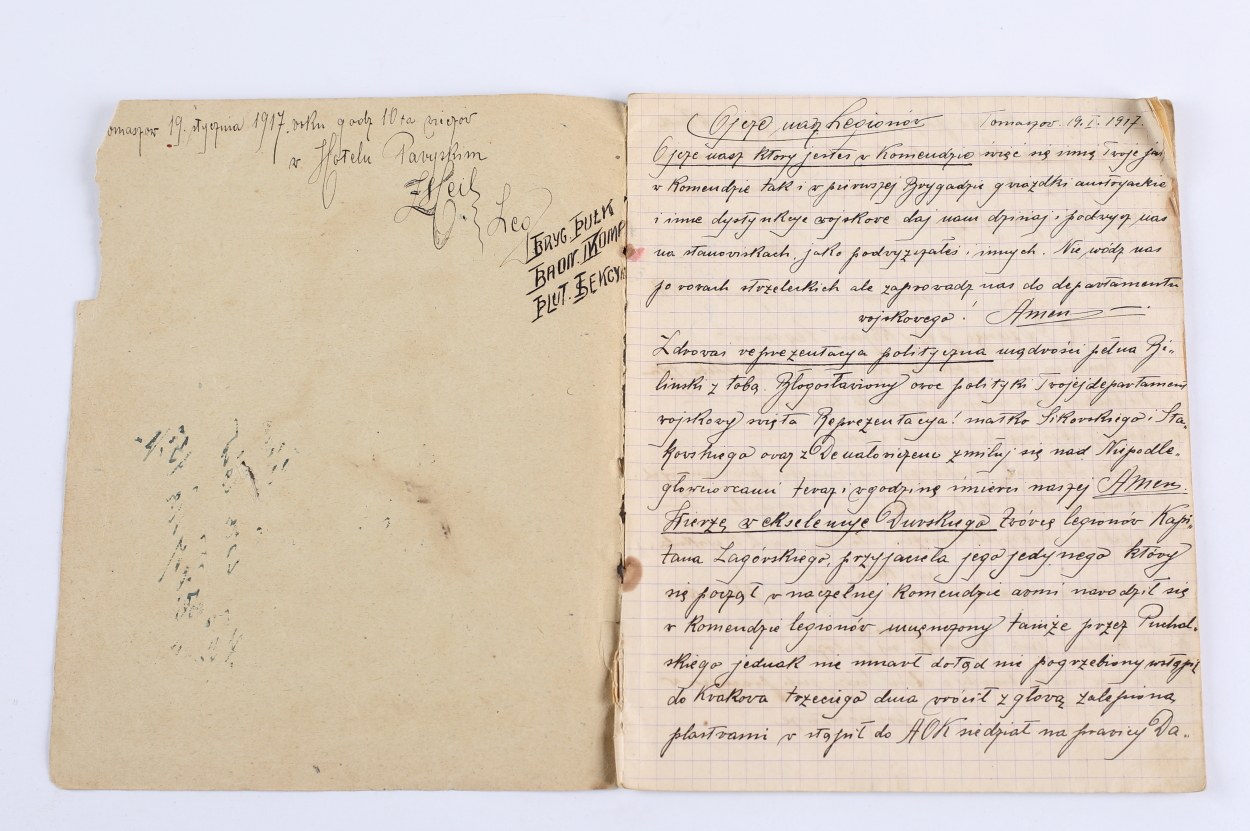 omaszow 19. stycznia 1917. roku godz 10ta wieczór
w Hotelu Paryskim
Leo
I BRYG. PUŁK
BAON. KOMP
PLUT. SEKCYA
Ojcze nasz Legionów Tomaszow 19. I. 1917.
Ojcze nasz który jesteś w Komendzie święć się imię Twoje jak
w Komendzie tak i w pierwszej Brygadzie gwiazdki austryackie
i inne dystynkcje wojskowe daj nam dzisiaj i podwyż nas
na stanowiskach, jako podwyższałeś i innych. Nie wódz nas
po rowach strzeleckich ale zaprowadz nas do departamentu
wojskowego! Amen
Zdrowaś reprezentacya polityczna mądrości pełna Bi-
liński z tobą. Błogosławiony owoc polityki Twojej departament
wojskowy święta Reprezentacya! matko Sikorskiego i Sta-
rowskiego oraz z Denatowiczem zmiłuj się nad Niepodle-
głowcami teraz i w godzinę śmierci naszej Amen.
Wierzę w ekselencję Durskiego twórcę legionów Kapi-
tana Zagórskiego, przyjaciela jego jedynego który
się począł w naczelnej Komendzie armi narodził się
w Komendzie legionów umęczony tamże przez Puchal-
skiego jednak nie umarł dotąd nie pogrzebiony wstąpił
do Krakowa trzeciego dnia wrócił z głową zalepioną
plastrami w stąpił do AOK siedział na prawicy Da-